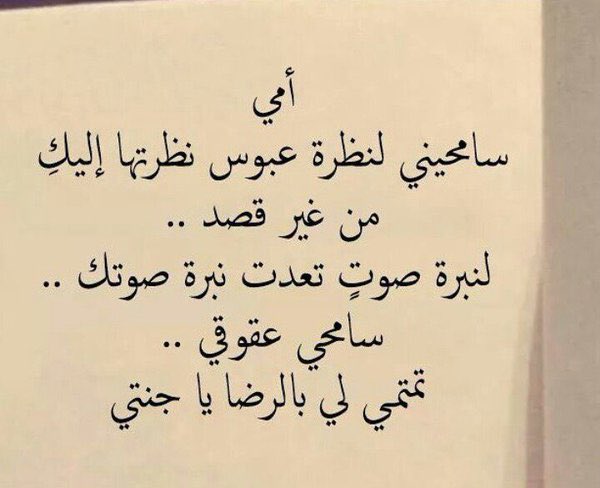 أمي
سامحيني لنظرة عبوس نظرتها إليكِ
من غير قصد ..
لنبرة صوتٍ تعدت نبرة صوتك ..
سامحي عقوقي ..
تمتمي لي بالرضا يا جنتي